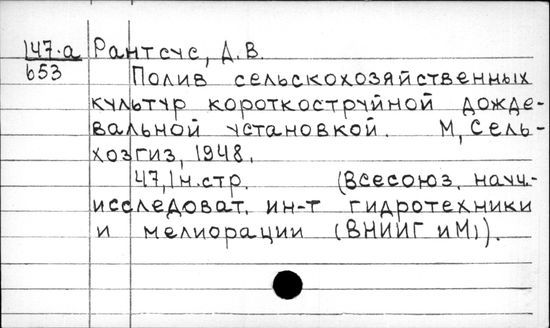 147.а Рантсус, Д.В.
653
Полив сельскохозяйственных
культур короткоструйной дожде-
вальной установкой. М, Сель-
хозгиз, 1948.
47,1н.стр. (Всесоюз. науч.-
исследоват. ин-т гидротехники
и мелиорации (ВНИИГ иМ)).